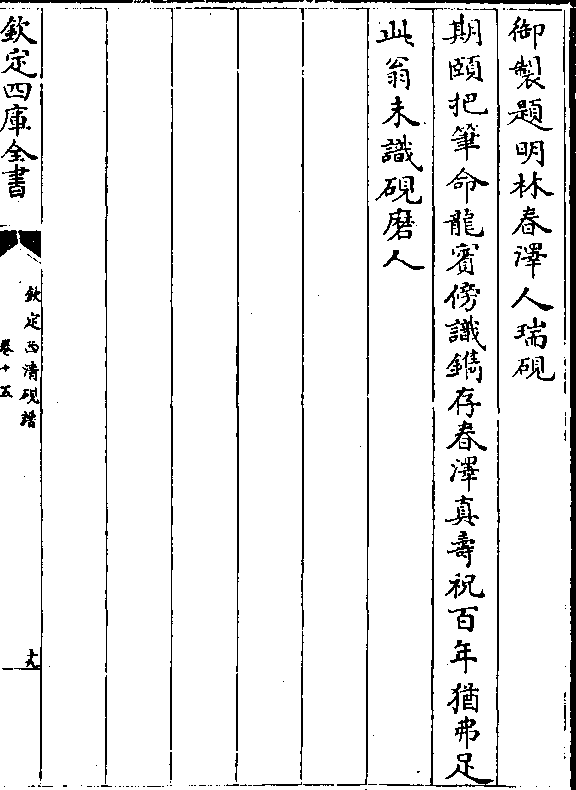 御製題明林春澤人瑞硯
期頤把筆命龍賓傍識鐫存春澤真壽祝百年猶弗足
此翁未識硯磨人
欽定四庫全書
欽定西清硯譜
卷十五
十九